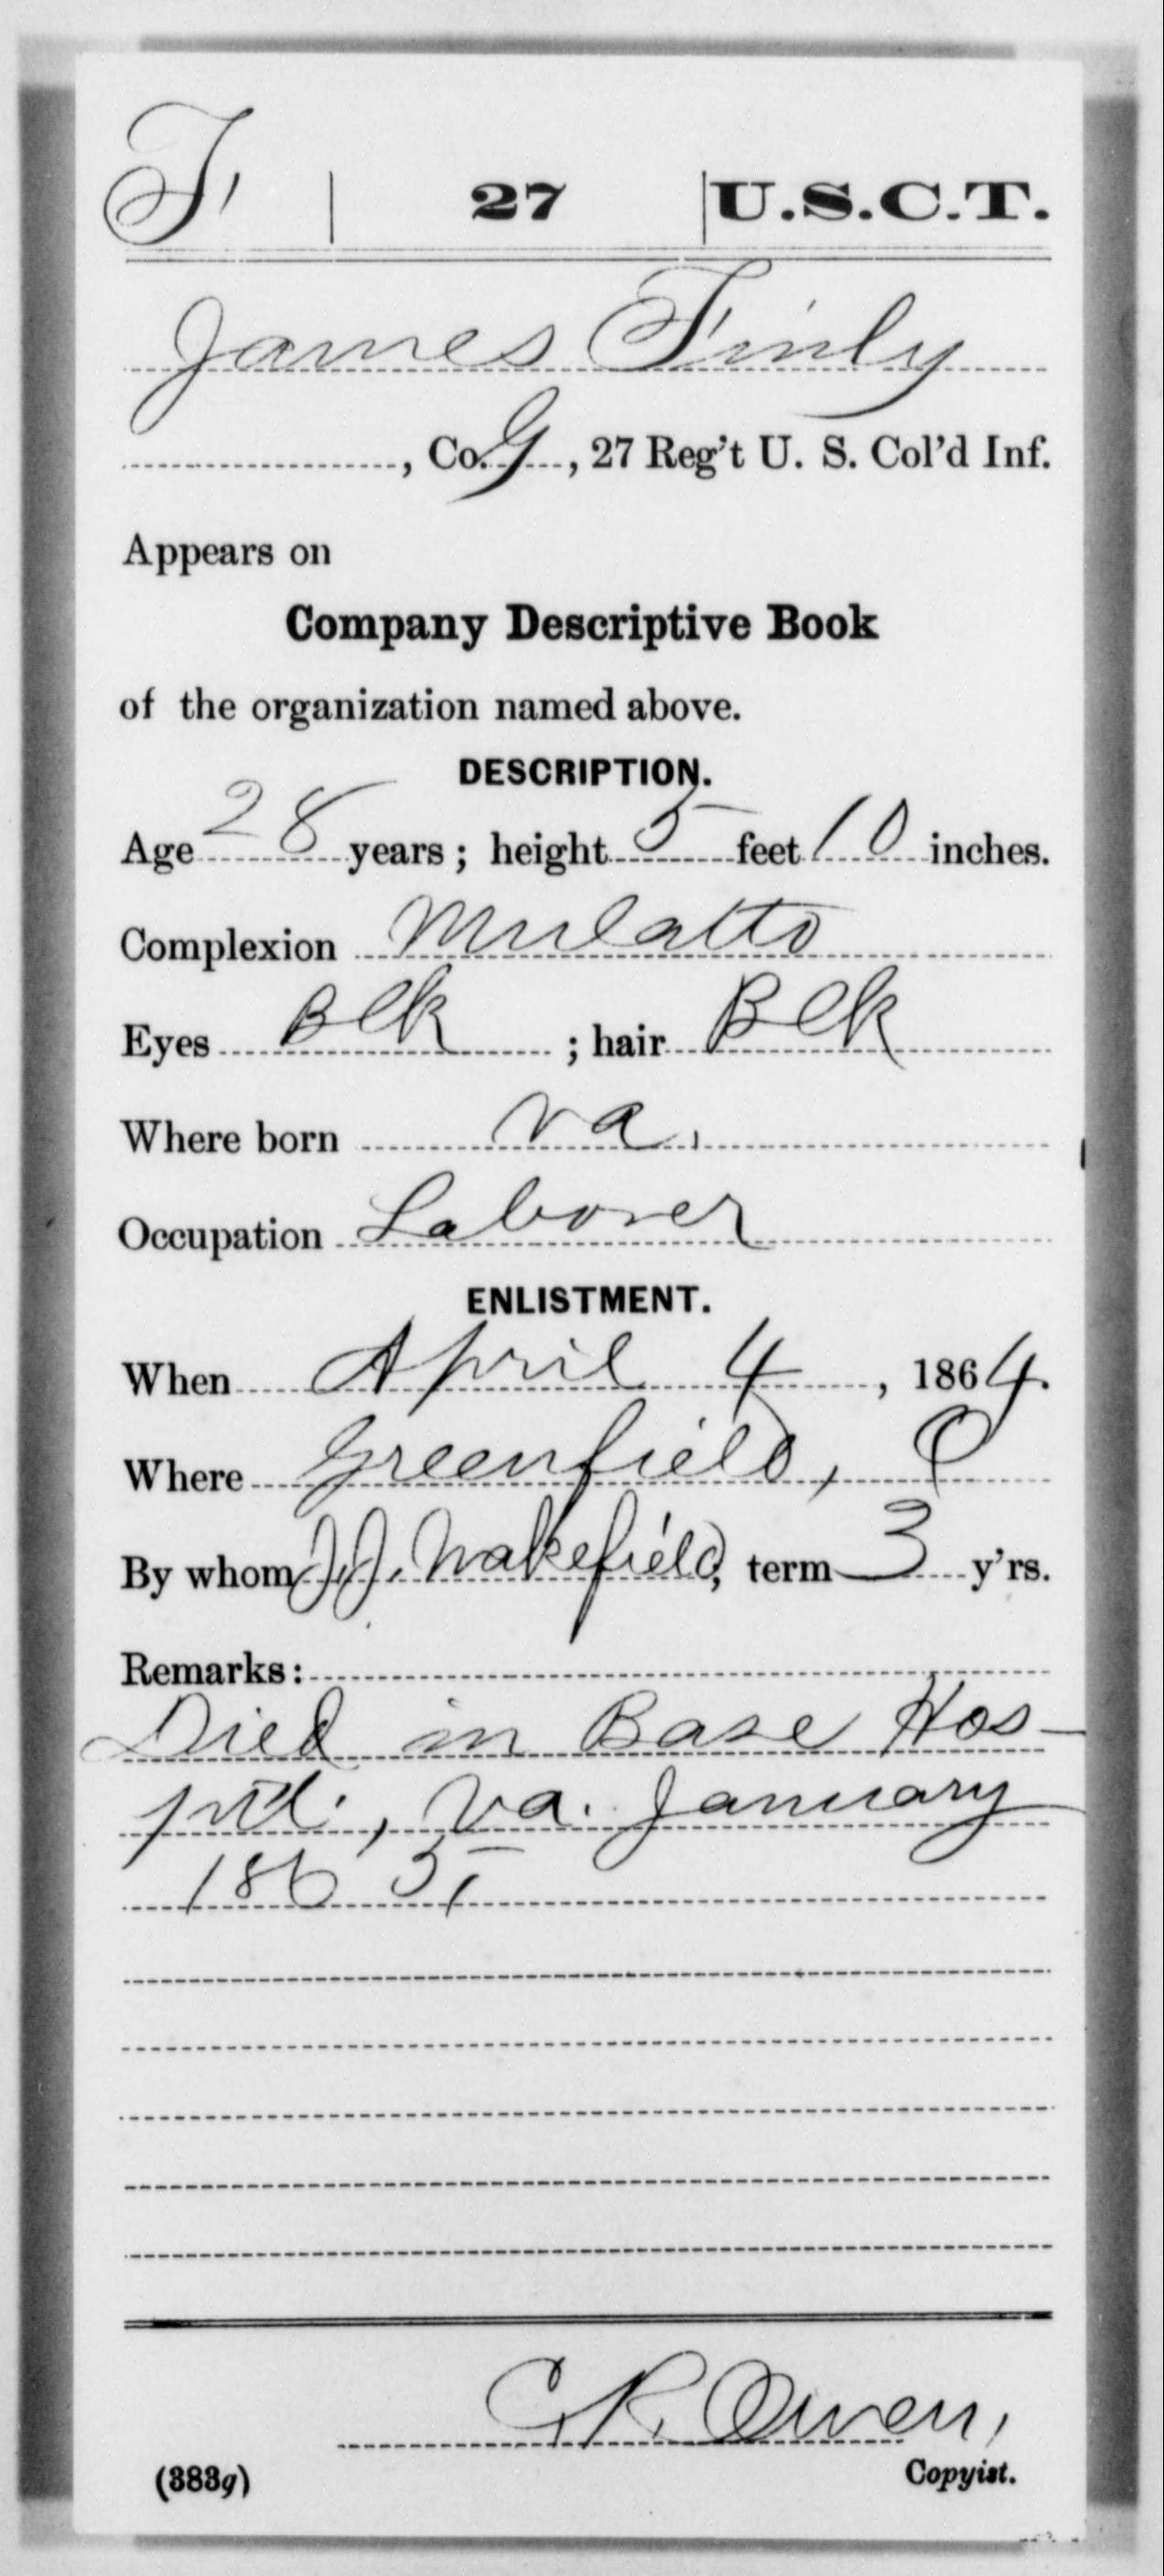 F | 27 | U.S.C.T.
James Finly
, Co. G, 27 Reg't U. S. Col'd Inf.
Appears on
Company Descriptive Book
of the organization named above.
DESCRIPTION.
Age 28 years; height 5 feet 10 inches.
Complexion Mulatto
Eyes Blk ; hair Blk
Where born Va.
Occupation Laborer
ENLISTMENT.
When April 4, 1864.
Where Greenfield, O
By whom J.J. Wakefield, term 3 y'rs.
Remarks:
Died in Base Hos-
ptl., Va. January
1865
C.R. Owen,
(383g) Copyist.